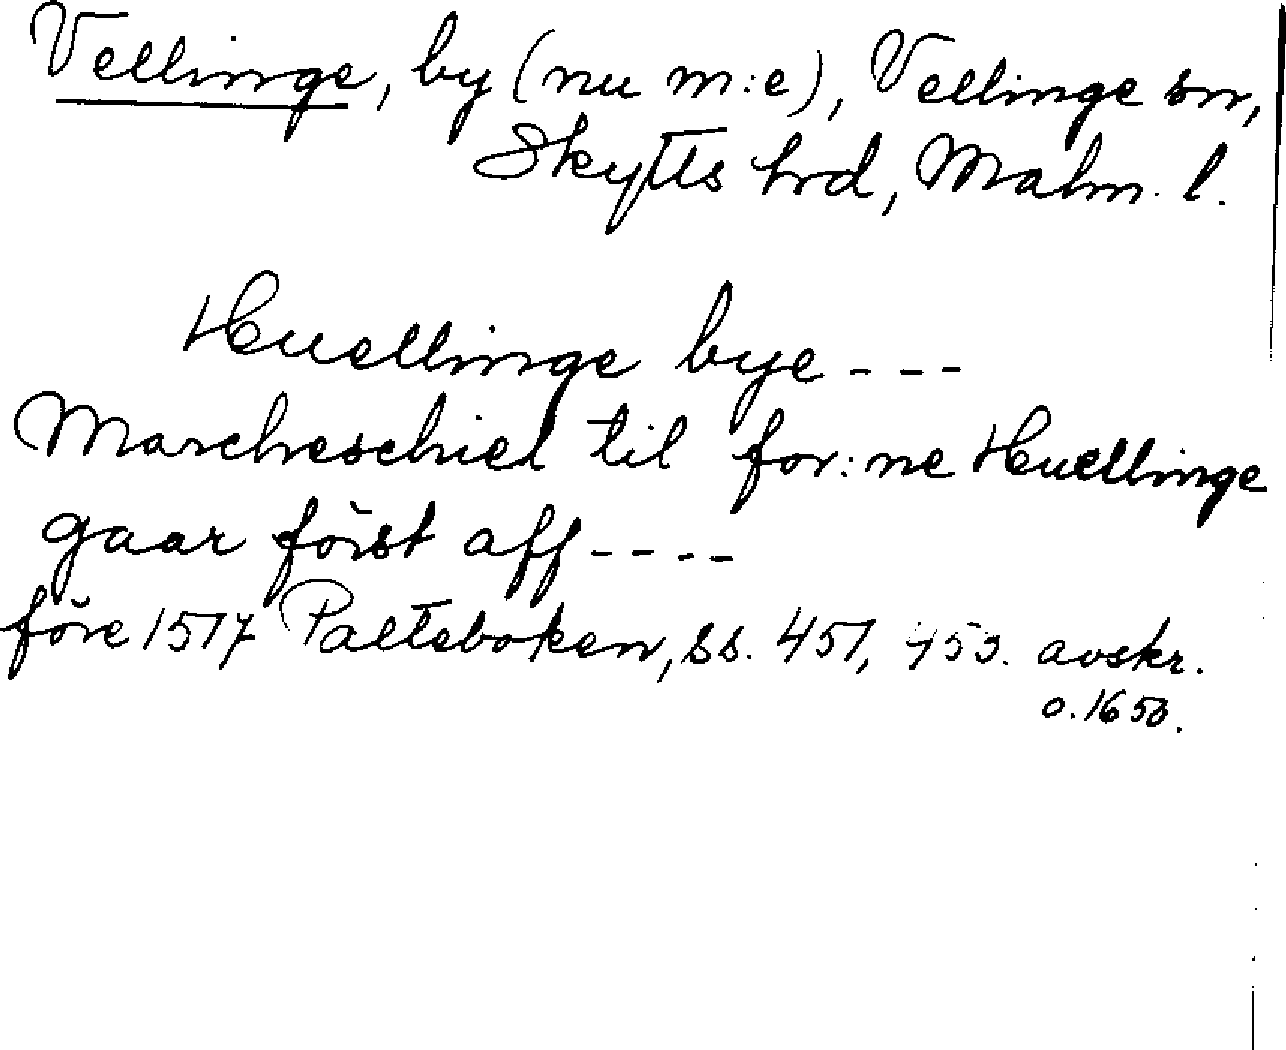 Vellinge, by (nu m:e), Vellinge sn,
Skytts hrd, Malm. l.
Huellinge bye - - -
Marcheschiel til for:ne Huellinge
gaar först aff - - - -
före 1517 Palteboken, ss. 451, 453. avskr.
o. 1650.